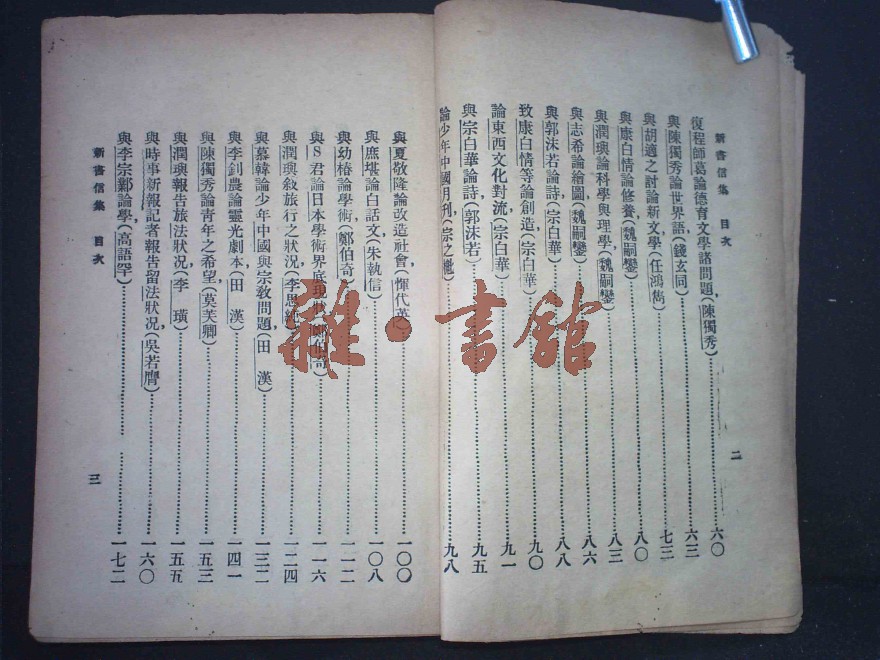 新書信集 目次
復程師葛論德育文學諸問題(陳獨秀)……六〇
與陳獨秀論世界語(錢玄同)……六三
與胡適之討論新文學(任鴻雋)……七三
與康白情論修養(魏嗣鑾)……八〇
與潤璵論科學與理學(魏嗣鑾)……八三
與志希論繪圖(魏嗣鑾)……八六
與郭沫若論詩(宗白華)……八八
致康白情等論創造(宗白華)……九〇
論東西文化對流(宗白華)……九一
與宗白華論詩(郭沫若)……九五
論少年中國月刊(宗之櫆)……九八
二
與夏敬隆論改造社會(惲代英)……一〇〇
與庶堪論白話文(朱執信)……一〇八
與幼椿論學術(鄭伯奇)……一一二
與S君論日本學術界底現狀(鄭伯奇)……一一六
與潤璵敘旅行之狀況(李思純)……一二四
與慕韓論少年中國與宗教問題(田 漢)……一三二
與李釗農論靈光劇本(田 漢)……一四一
與陳獨秀論青年之希望(莫芙卿)……一五三
與潤璵報告旅法狀況(李 璜)……一五五
與時事新報記者報告留法狀況(吳若膺)……一六〇
與李宗鄴論學(高語罕)……一七二
新書信集 目次
三
雜·書館